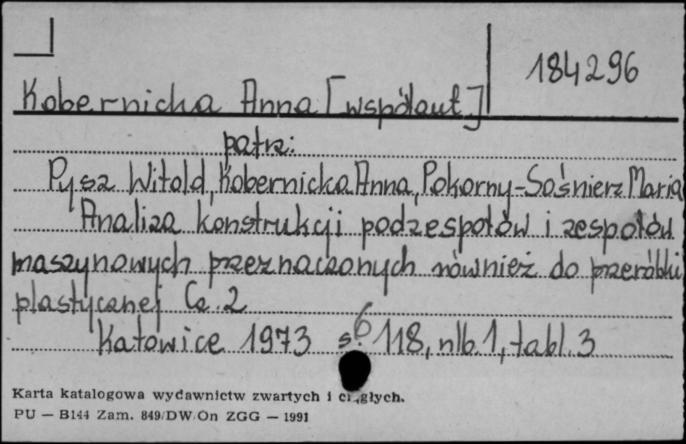 184296
Kobernicka Anna [współaut.]
patrz:
Pysz Witold, Kobernicka Anna, Pokorny-Sośnierz Maria
Analiza konstrukcji podzespołów i zespołów
maszynowych przeznaczonych również do przeróbki
plastycznej Cz. 2
Katowice 1973 s. 6 118, nlb. 1, tabl. 3
Karta katalogowa wydawnictw zwartych i ciągłych.
PU — B144 Zam. 849/DW/On ZGG — 1991